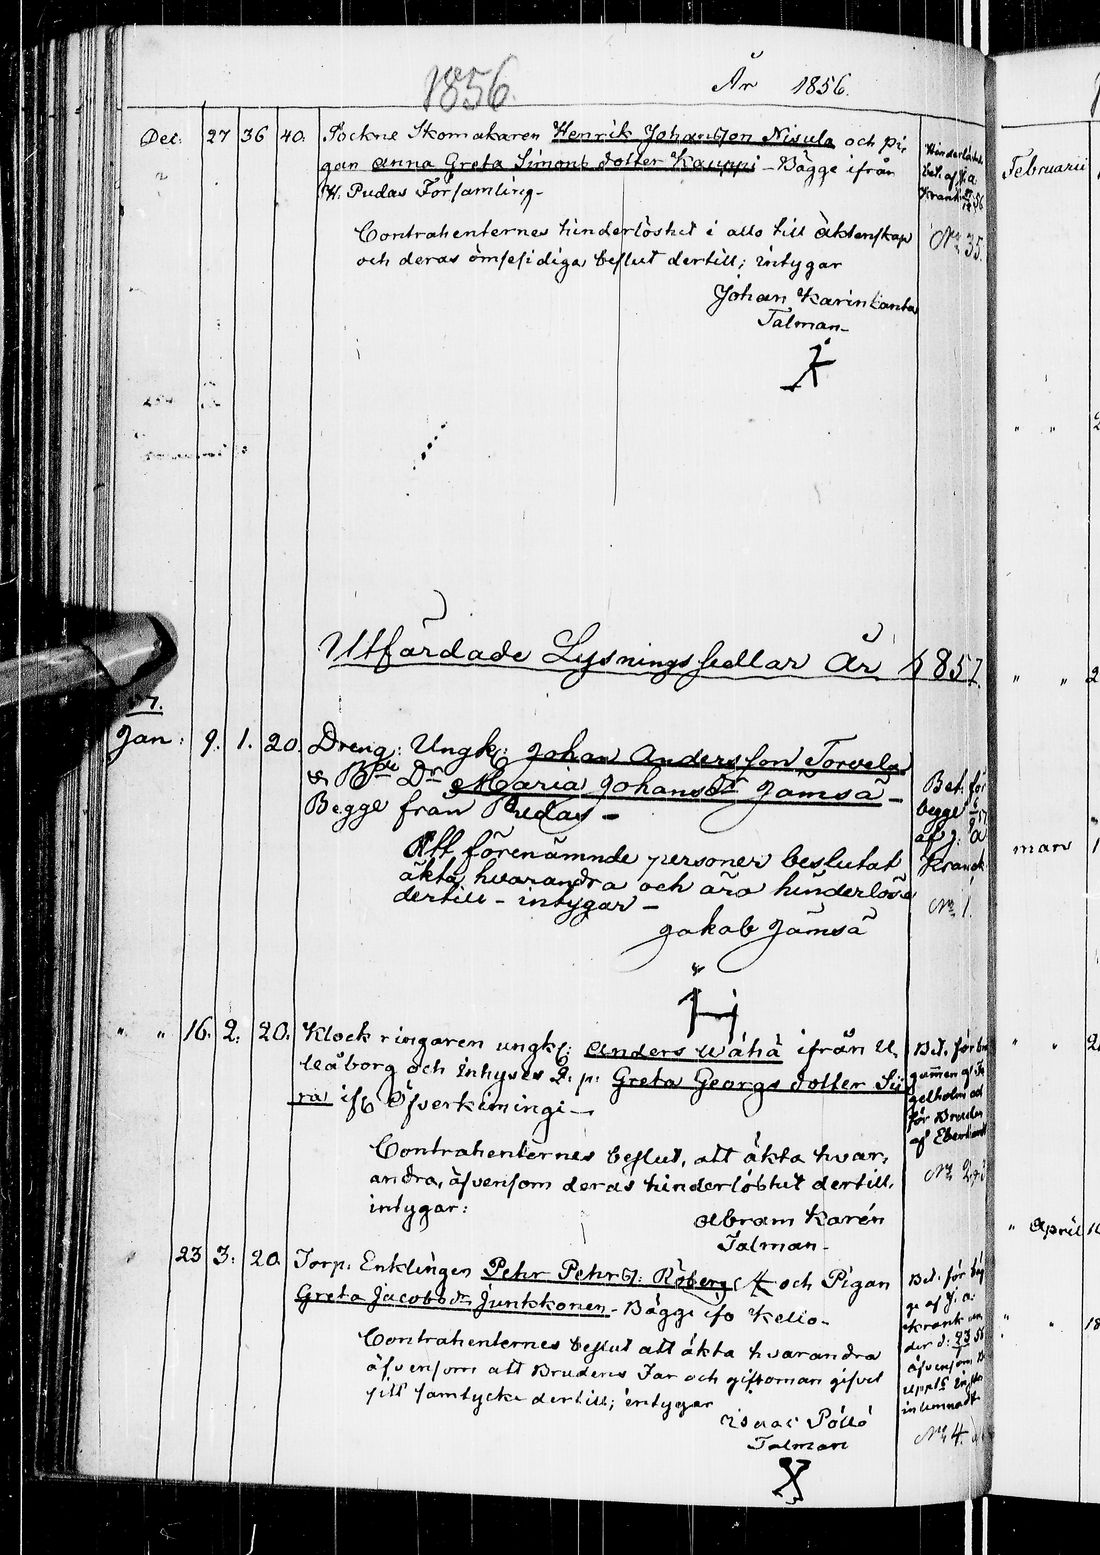 1856.
År 1856.
Dec. 27 36 40. Sockne Skomakaren Henrik Johansson Nisula och pi-
gan Anna Greta Simons dotter Kauppi - Bägge ifrån
H. Pudas Församling -
Contrahenternes hinderlöshet i allo till äktenskap
och deras ömsesidiga beslut dertill; intygar
Johan Karinkanta
Talman -
Hinderlöshets
bet. af J. a
Krank 56
No 35.
Utfärdade Lysningssedlar År 1857.
57.
Jan: 9. 1. 20. Dreng: Ungk: Johan Andersson Torvela
& Bde Dr Maria Johansdr Jämsä -
Begge från Pudas -
Att förenämnde personer beslutat
äkta hvarandra och äro hinderlösa
dertill - intygar -
Jakob Jämsä
Bet. för
begge
af J. a
Kranck
No 1.
" " 16. 2. 20. Klockringaren ungk: Anders Wähä ifrån U,
leåborg och inhyses D. p: Greta Georgs dotter Sii
ra ifr Öfverkimingi -
Contrahenternes beslut, att äkta hvar,
andra, äfvensom deras hinderlöshet dertill,
intygar:
Abram Karén
Talman -
Bet. för
gummen af
gelholm
för Bruden
af
No 2
" 23 3. 20. Torp: Enklingen Pehr Pehrs: Röberg och Pigan
Greta Jacobsdr Junkkonen - Bägge ifr Kello -
Contrahenternes beslut att äkta hvarandra
äfvensom att Brudens Far och giftoman gifvet
sitt samtycke dertill; intygar
Isaac Pöllö
Talman
Bet. för bäg
ge af J. a.
Krank
der d: 23
äfvensom
inlemnadt
No 4.
Februarii
" "
" "
mars
" "
" April
" "